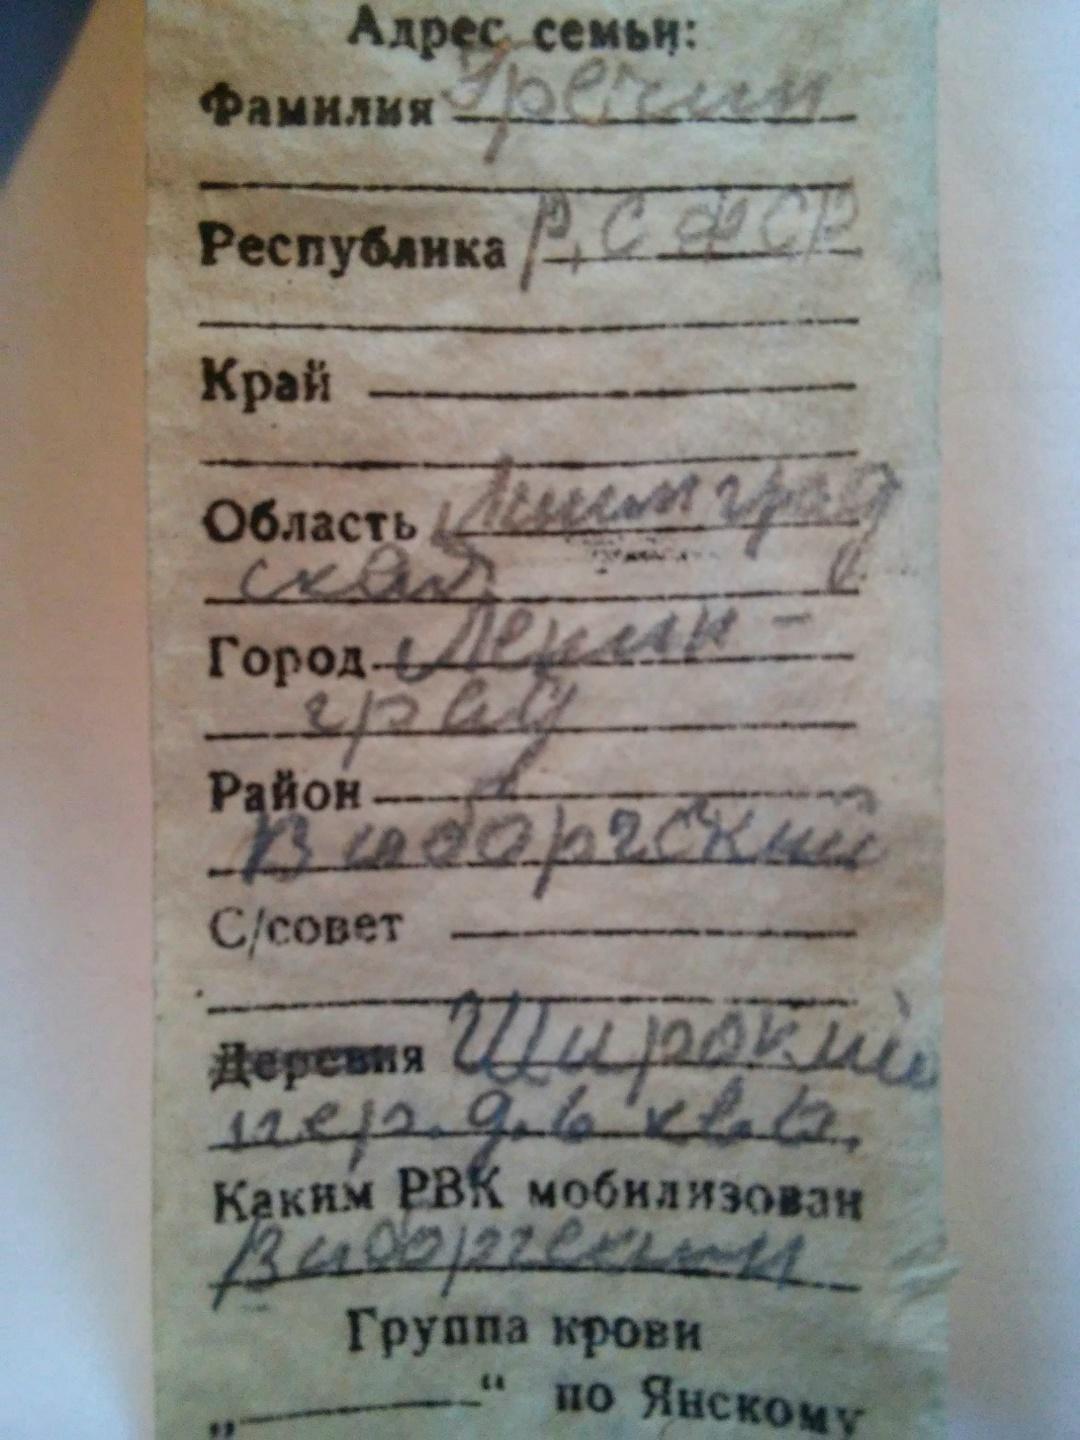 Адрес семьи:
Фамилия Гречин
Республика Р,СФСР
Край
Область Ленинград
ская
Город Ленин-
град
Район
Виборгский
С/совет
Деревня Широкий
пер. д. 6 кв. 6.
Каким РВК мобилизован
Виборгским
Группа крови
„ “ по Янскому